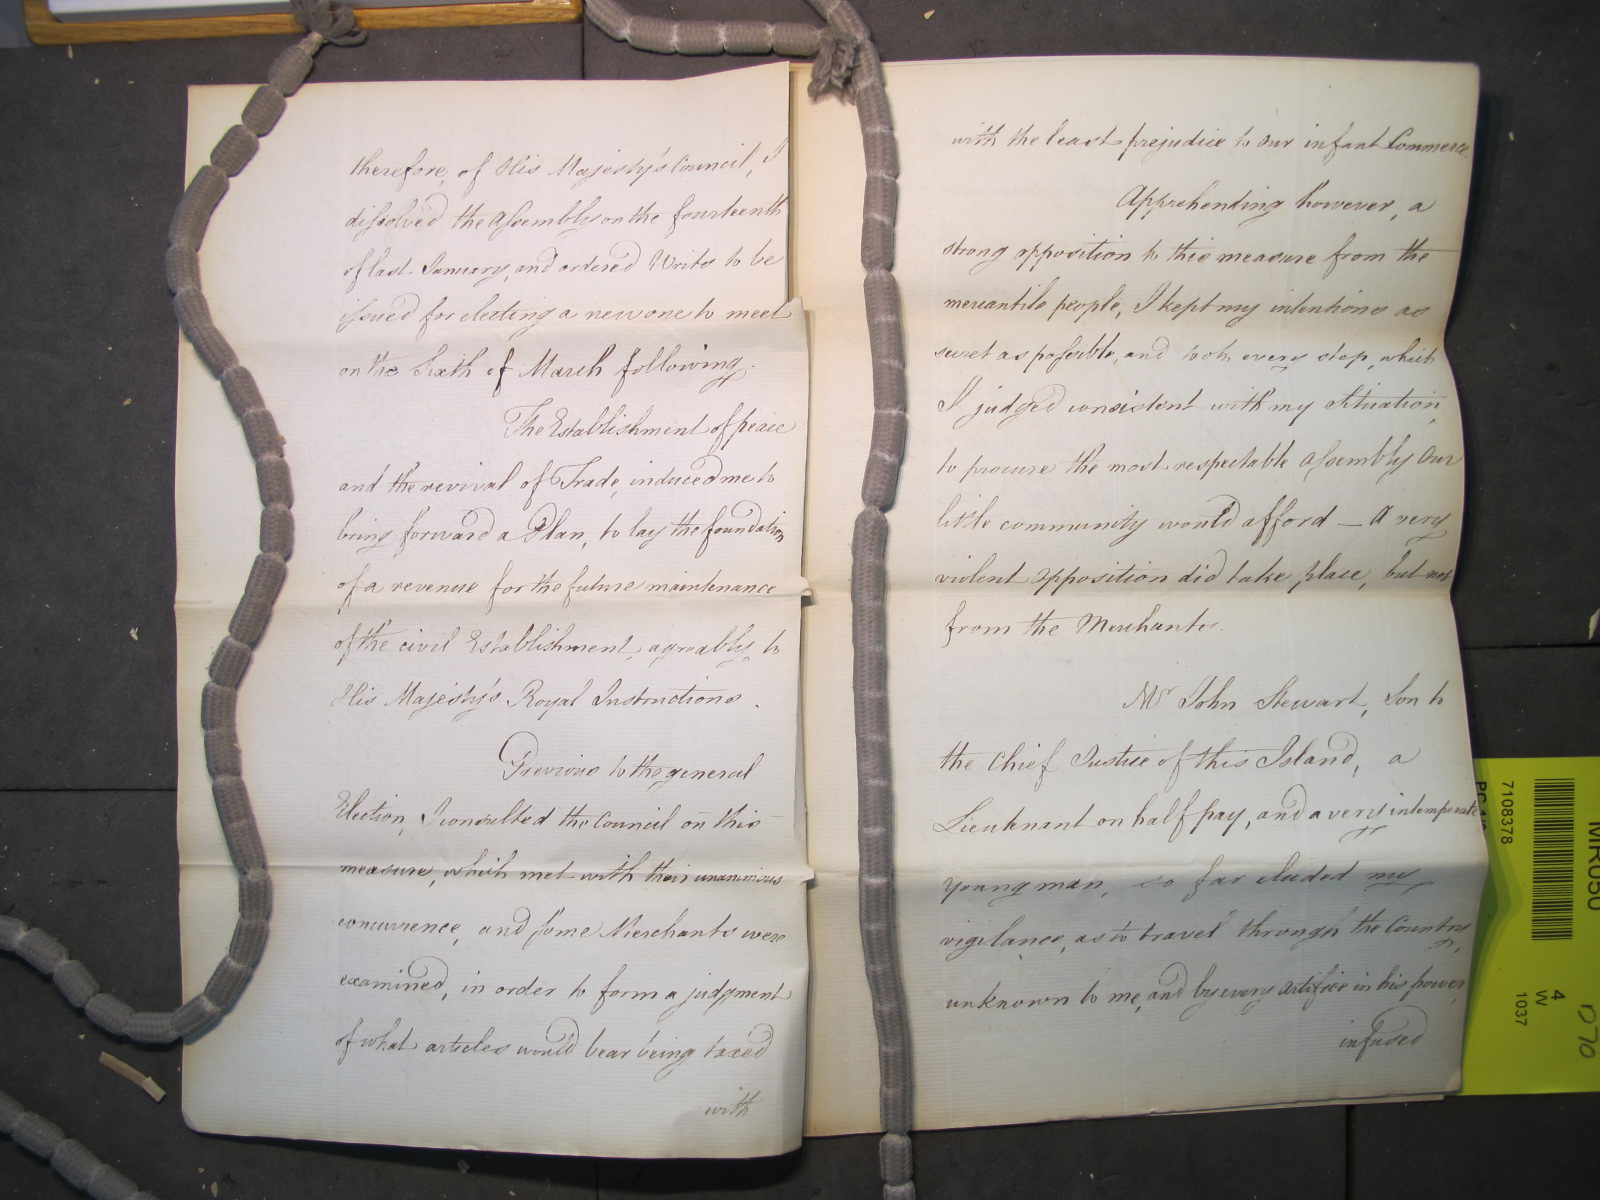 therefore, of His Majesty's Council, I
dissolved the Assembly on the fourteenth
of last January, and ordered Writs to be
issued for electing a new one to meet
on the Sixth of March following.
The Establishment of peace
and the revival of Trade, induced me to
bring forward a Plan, to lay the foundation
of a revenue for the future maintenance
of the civil Establishment, agreably to
His Majesty's Royal Instructions.
Previous to the general
Election, I consulted the Council on this
measure, which met with their unanimous
concurrence, and some Merchants were
examined, in order to form a judgment
of what articles would bear being taxed
with
with the least prejudice to our infant Commerce.
Apprehending however, a
strong opposition to this measure from the
mercantile people, I kept my intentions as
secret as possible, and took every step, which
I judged consistent with my Situation,
to procure the most respectable Assembly Our
little community would afford — A very
violent opposition did take place, but not
from the Merchants.
Mr John Stewart, Son to
the Chief Justice of this Island, a
Lieutenant on half pay, and a very intemperate
young man, so far eluded my
vigilance, as to travel through the Country,
unknown to me, and by every artifice in his power,
infused
7108378
MR050
4
W
1037